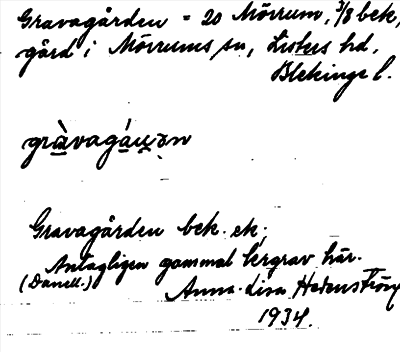 Gravagården = 20 Mörrum, 3/8 bek,
gård i Mörrums sn, Listers hd,
Blekinge l.
gràvagáu̯ən
Gravagården bek. ek.
Antagligen gammal lergrav här.
(Danell.)
Anna-Lisa Hedenström
1934.